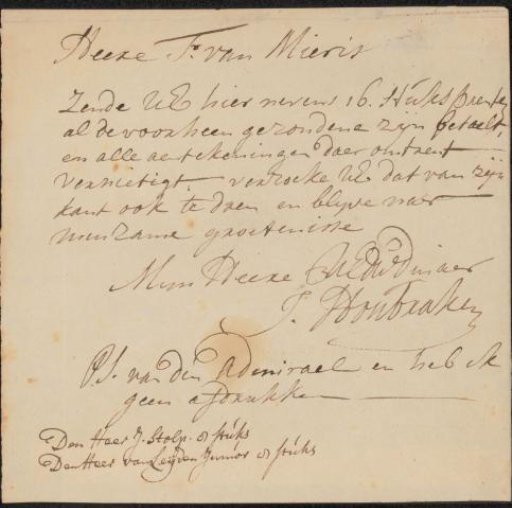 Heere F. van Mieris
Zende UE hier nevens 16. stuks prenten
al de voorheen gezondene zijn betaelt,
en alle aentekeningen daer omtrent
vernietigt. verzoeke UE dat van zijn
kant ook te doen en blyve naer
minzame groetenisse
Mijn Heere UEDWDienaer
J. Houbraken
P.S. van den Admirael en heb ik
geen afdrukken
Den Heer J. Stolp. 8 stuks
Den Heer van Leijden Junior 8 stuks